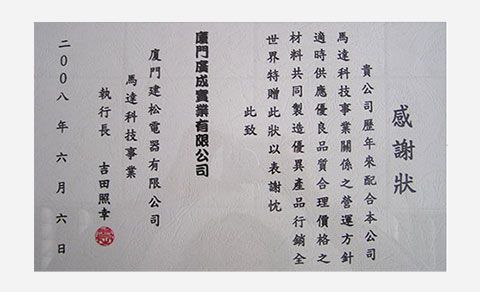 感謝狀
貴公司歷年來配合本公司
馬達科技事業關係之營運方針
適時供應優良品質合理價格之
材料共同製造優異產品行銷全
世界特贈此狀以表謝忱
此致
廈門廣成實業有限公司
廈門建松電器有限公司
馬達科技事業
執行長 吉田照幸
二00八年六月六日